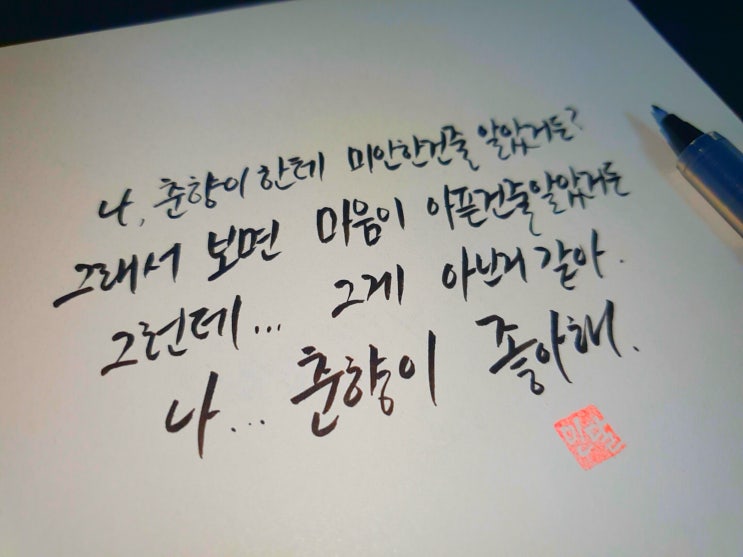 나, 춘향이 한테 미안한건줄 알았거든?
그래서 보면 마음이 아픈건줄알았거든
그런데... 그게 아닌거 같아.
나... 춘향이 좋아해.